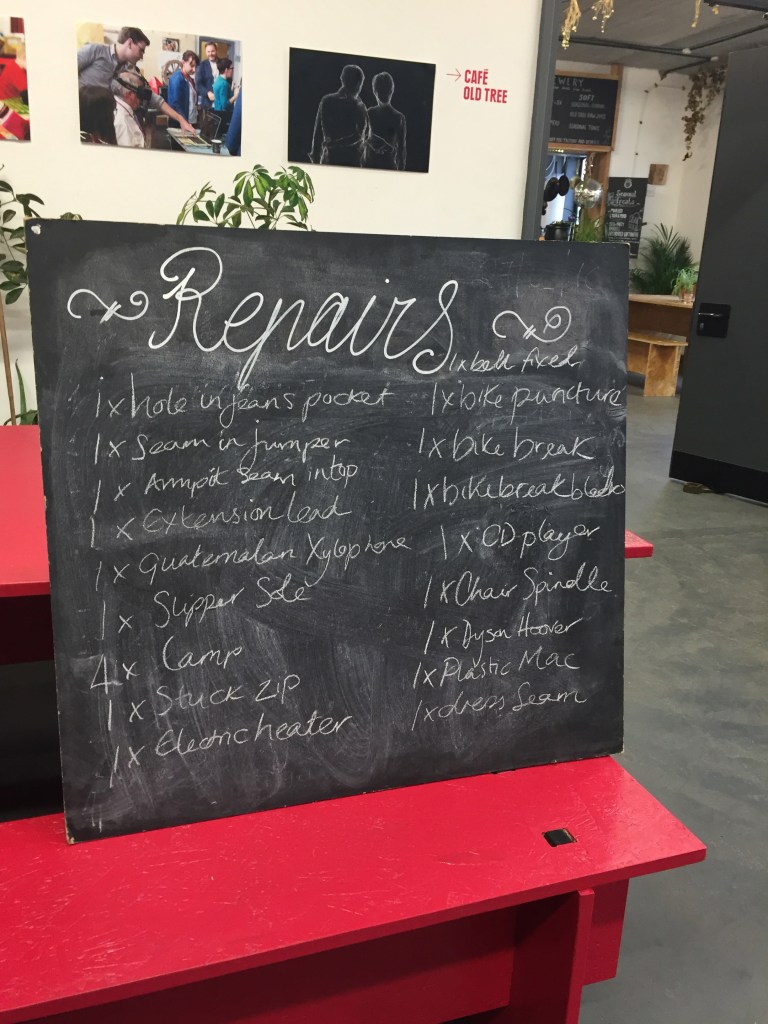 → CAFË
OLD TREE
Repairs
1 x hole in jeans pocket
1 x Seam in jumper
1 x Armpit Seam in top
1 x Extension lead
1 x Guatemalan Xylophone
1 x Slipper Sole
4 x Lamp
1 x Stuck zip
1 x Electric heater
1 x belt fixed
1 x bike puncture
1 x bike break
1 x bike break blocks
1 x CD player
1 x Chair Spindle
1 x Dyson Hoover
1 x Plastic Mac
1 x dress Seam